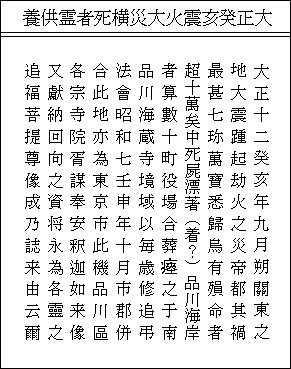 大正癸亥震火大災横死者霊供養
大正十二癸亥年九月朔關東之
地大震踵起劫火之災帝都其禍
最甚七珎萬寶悉歸烏有殞命者
超十萬矣中死屍漂著（着？）品川海岸
者算數十町役場合葬瘞之于南
品川海蔵寺境域以毎歳修追弔
法會昭和七壬申年十月市郡併
合此地亦為東京市此機品川區
各宗寺院胥謀奉安釈迦如来像
又獻納回向之資将永為各霊之
追福菩提尊像成乃誌来由云爾